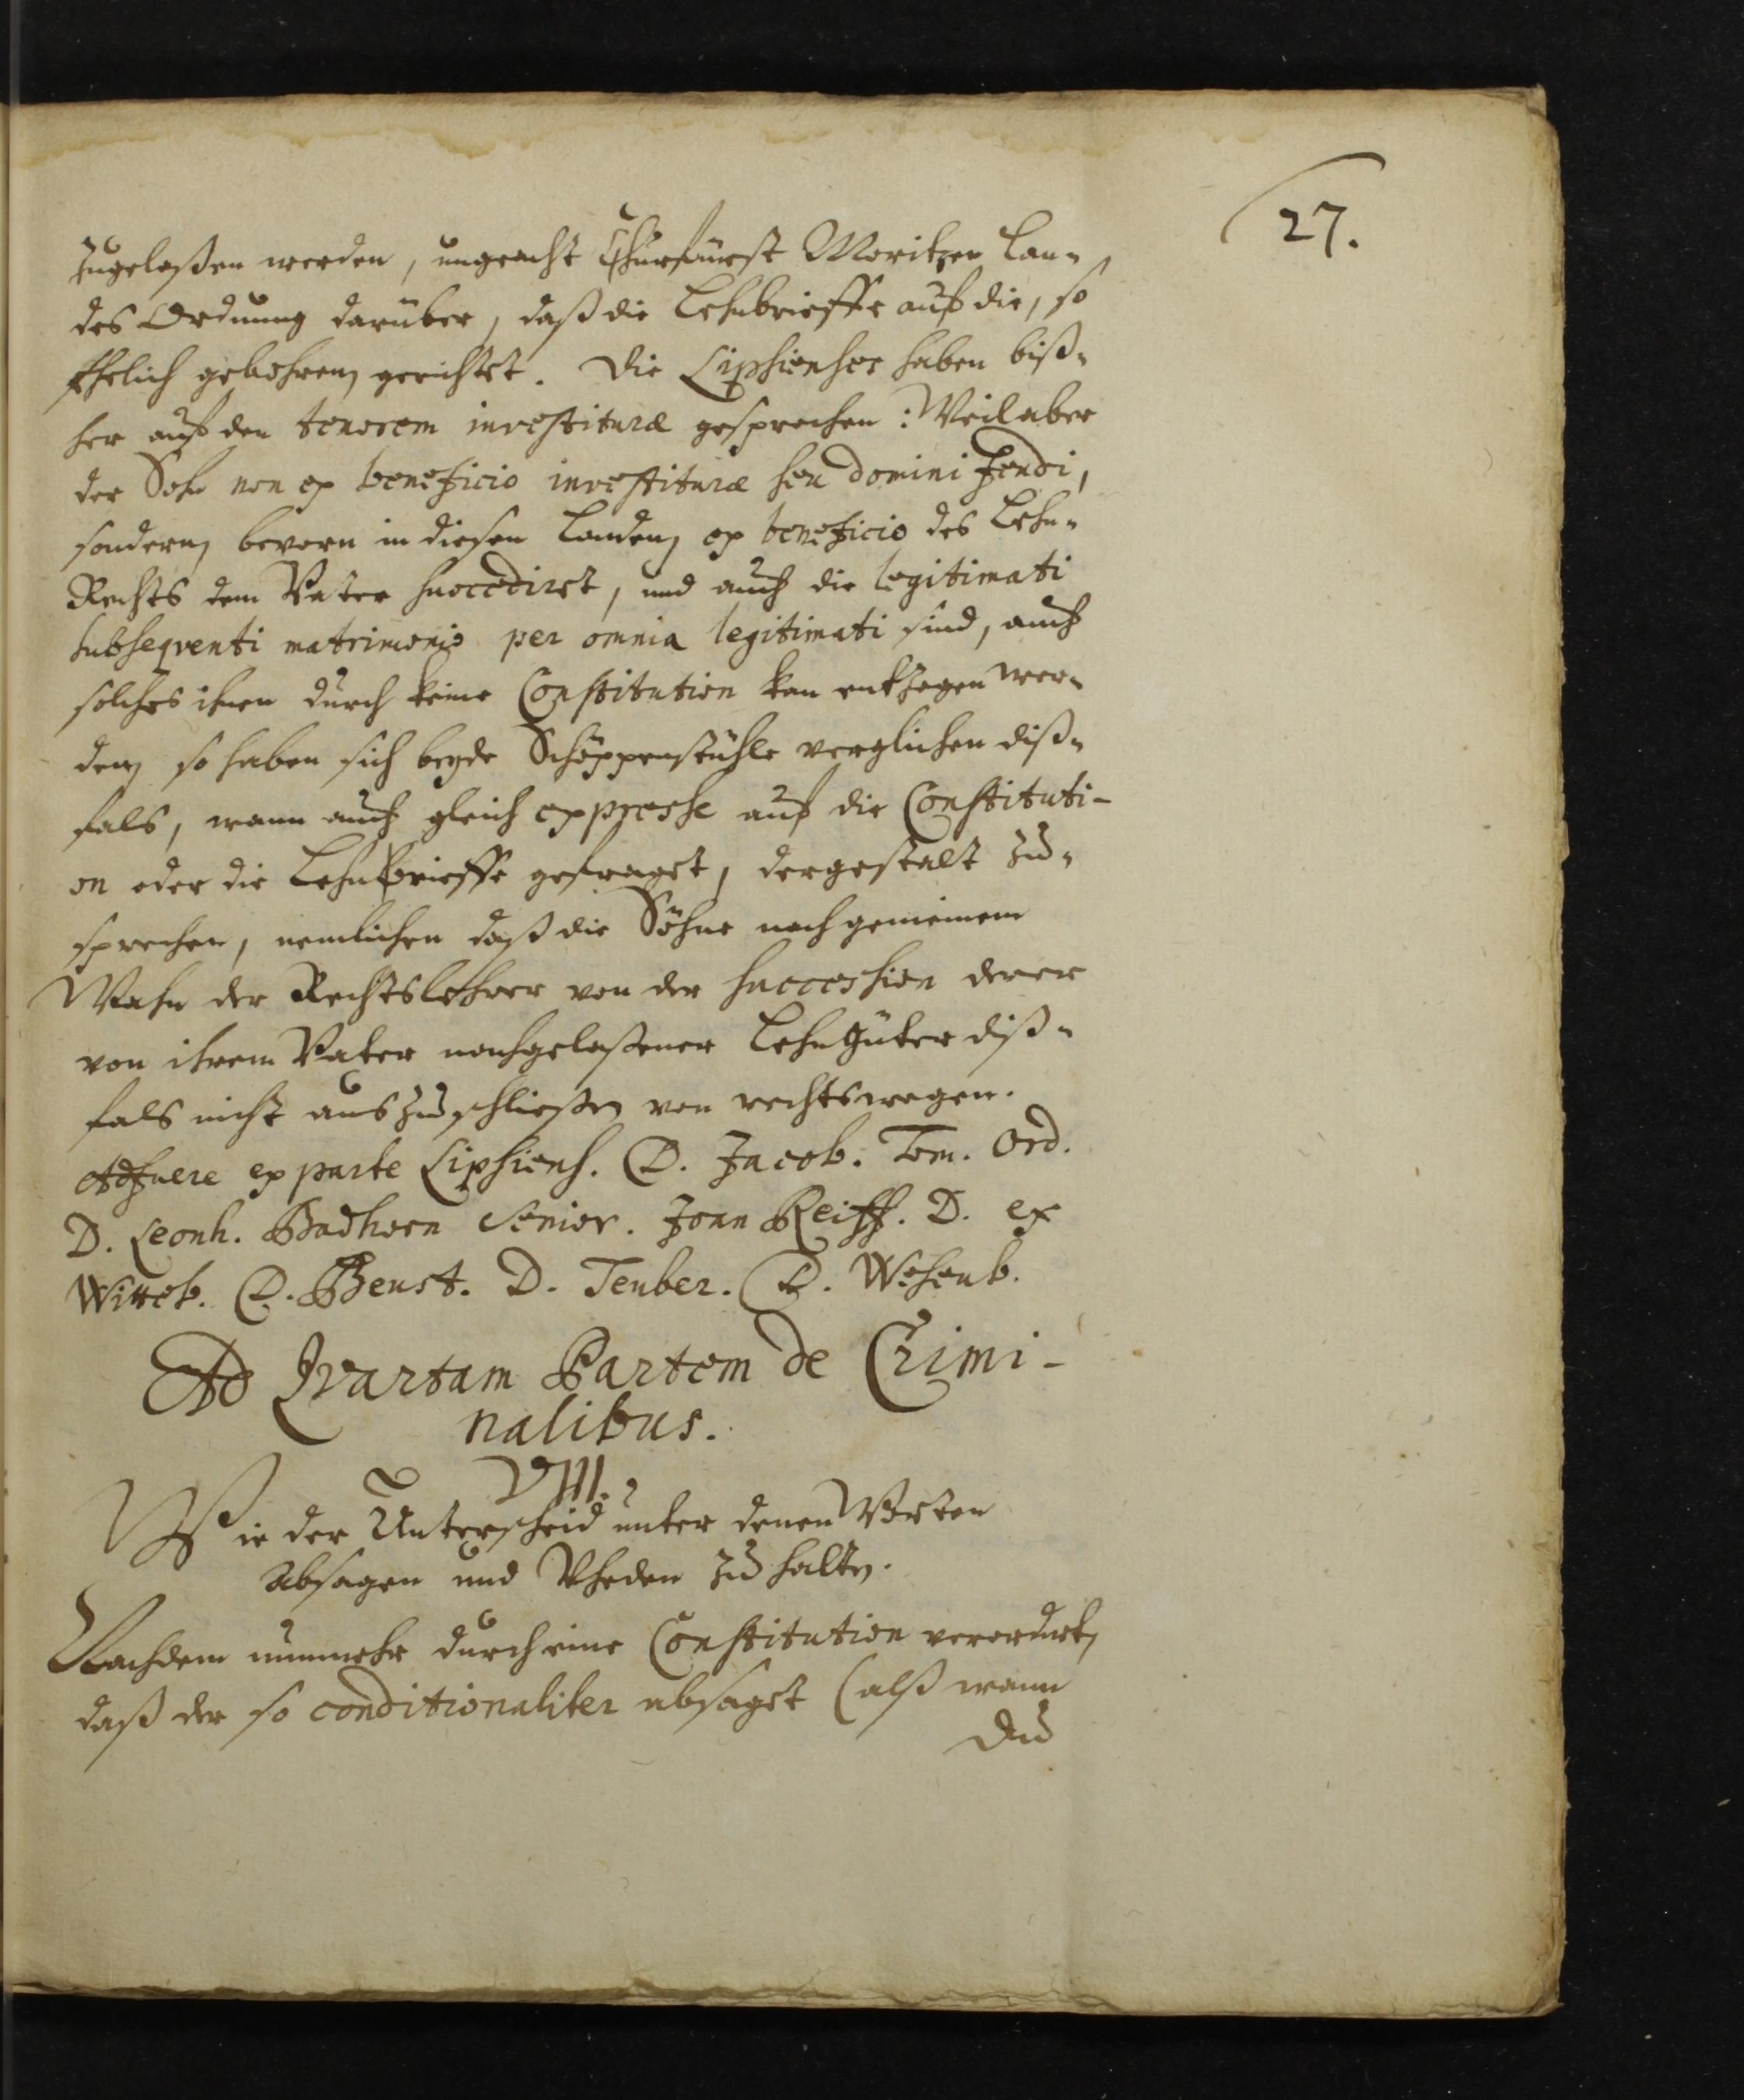 27.
zugelaßen werden, ungeacht Churfürst Moritzen Lan-
des Ordnung darüber, daß die Lehnbrieffe auf die, so
Ehelich gebohren gerichtet. Die Lipsienses haben biß-
her auf den tenorem investituræ gesprochen: Weil aber
der Sohn non ex beneficio investituræ seu domini feudi,
sondern bevorn in diesen Landen ex beneficio des Lehn-
Rechts dem Vater succediret, und auch die legitimati
subseqventi matrimonio per omnia legitimati sind, auch
solches ihnen durch keine Constitution kan entzogen wer-
den so haben sich beyde Schöppenstühle verglichen diß-
fals, wann auch gleich expresse auf die Constituti-
on oder die Lehnbrieffe gefraget, dergestalt zu-
sprechen, nemlichen daß die Söhne nach gemeinem
Wahn der Rechtslehrer von der succession derer
von ihrem Vater nachgelaßener Lehngüter diß-
fals nicht auszuschließen von rechtswegen.
Adfuere ex parte Lipsiens. D. Jacob. Tom. Ord.
D. Leonh. Badhorn Senior. Joan Reiff. D. ex
Witteb. D. Beust. D. Teuber. D. Wesenb.
Ad Qvartam Partem de Crimi-
nalibus.
VIII.
Wie der Unterscheid unter denen Worten
Absagen und Vheden zu halten.
Nachdem nunmehr durch eine Constitution verordnet,
daß der so conditionaliter absaget (alß wann
Du